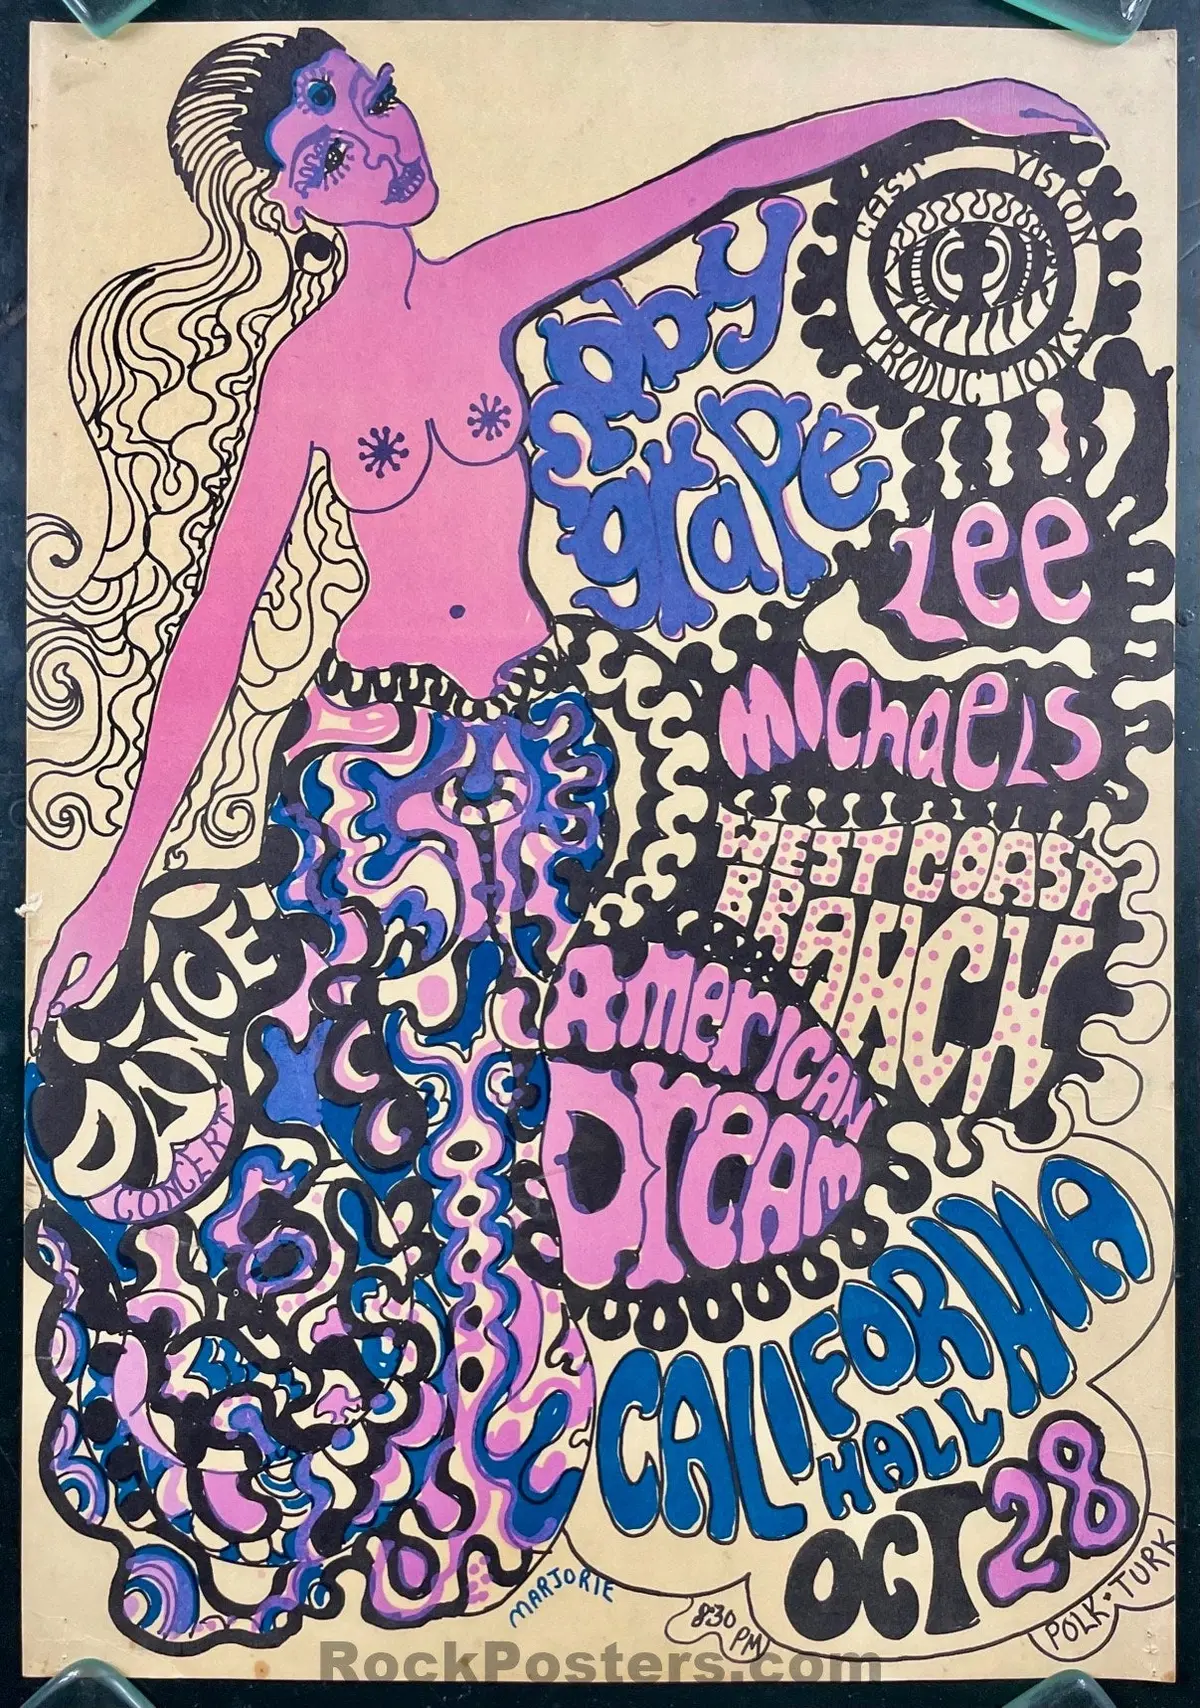 EAST VISION
PRODUCTIONS
Moby
grape
Lee
Michaels
WEST COAST
BRANCH
AMERICAN
Dream
DANCE
CONCERT
CALIFORNIA
HALL
OCT 28
MARJORIE
8:30
PM
POLK · TURK
RockPosters.com